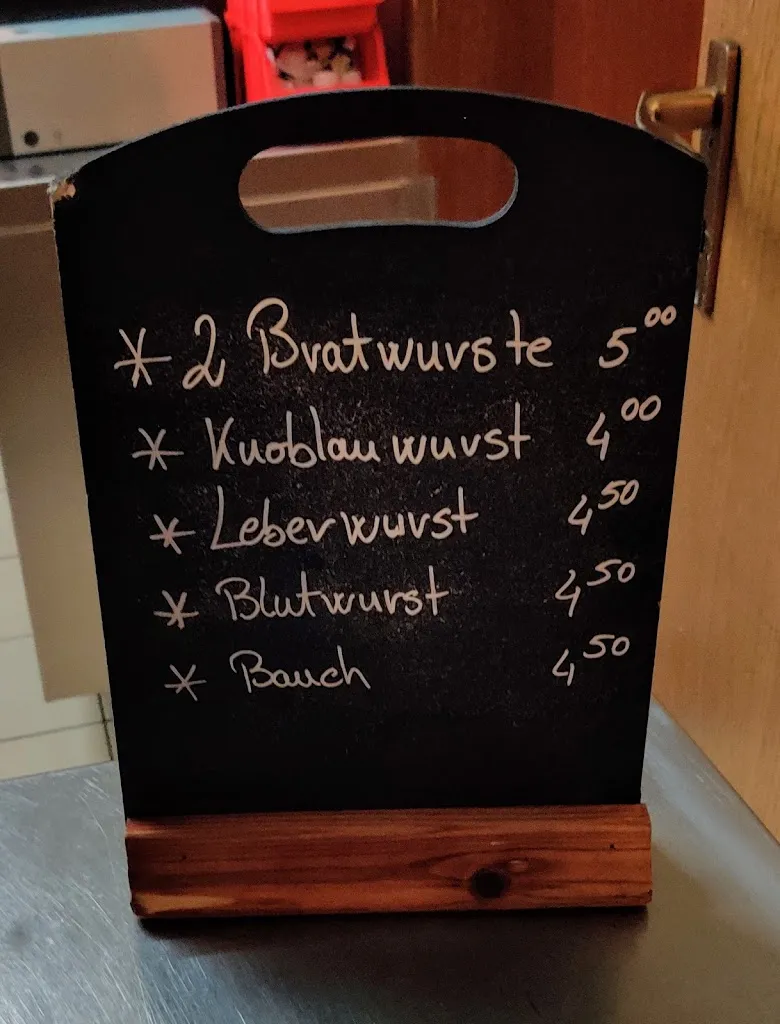 * 2 Bratwurste 5⁰⁰
* Knoblau wurst 4⁰⁰
* Leberwurst 4⁵⁰
* Blutwurst 4⁵⁰
* Bauch 4⁵⁰